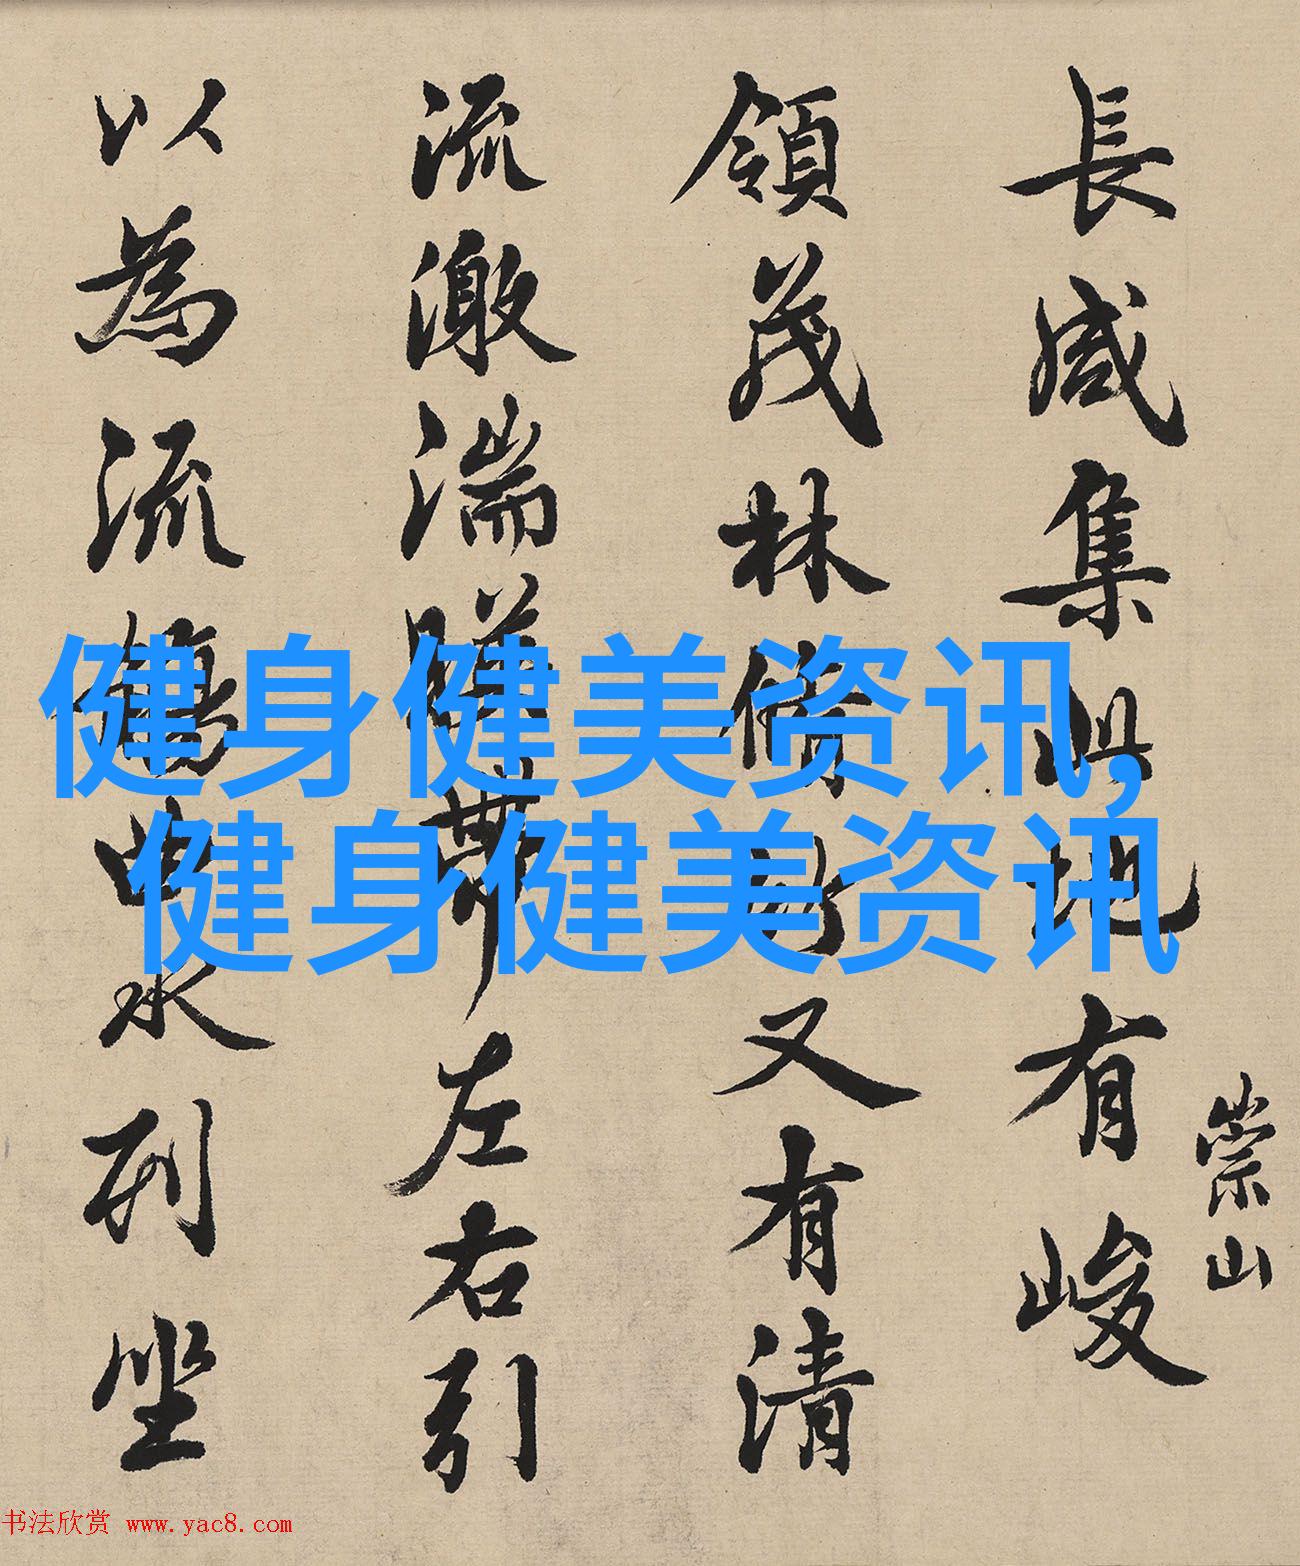 崇山
長咸集此地有峻
領茂林脩竹又有清
流激湍暎帶左右引
以為流觴曲水列坐
健身健美资讯,
健身健美资讯
书法欣赏 www.yac8.com